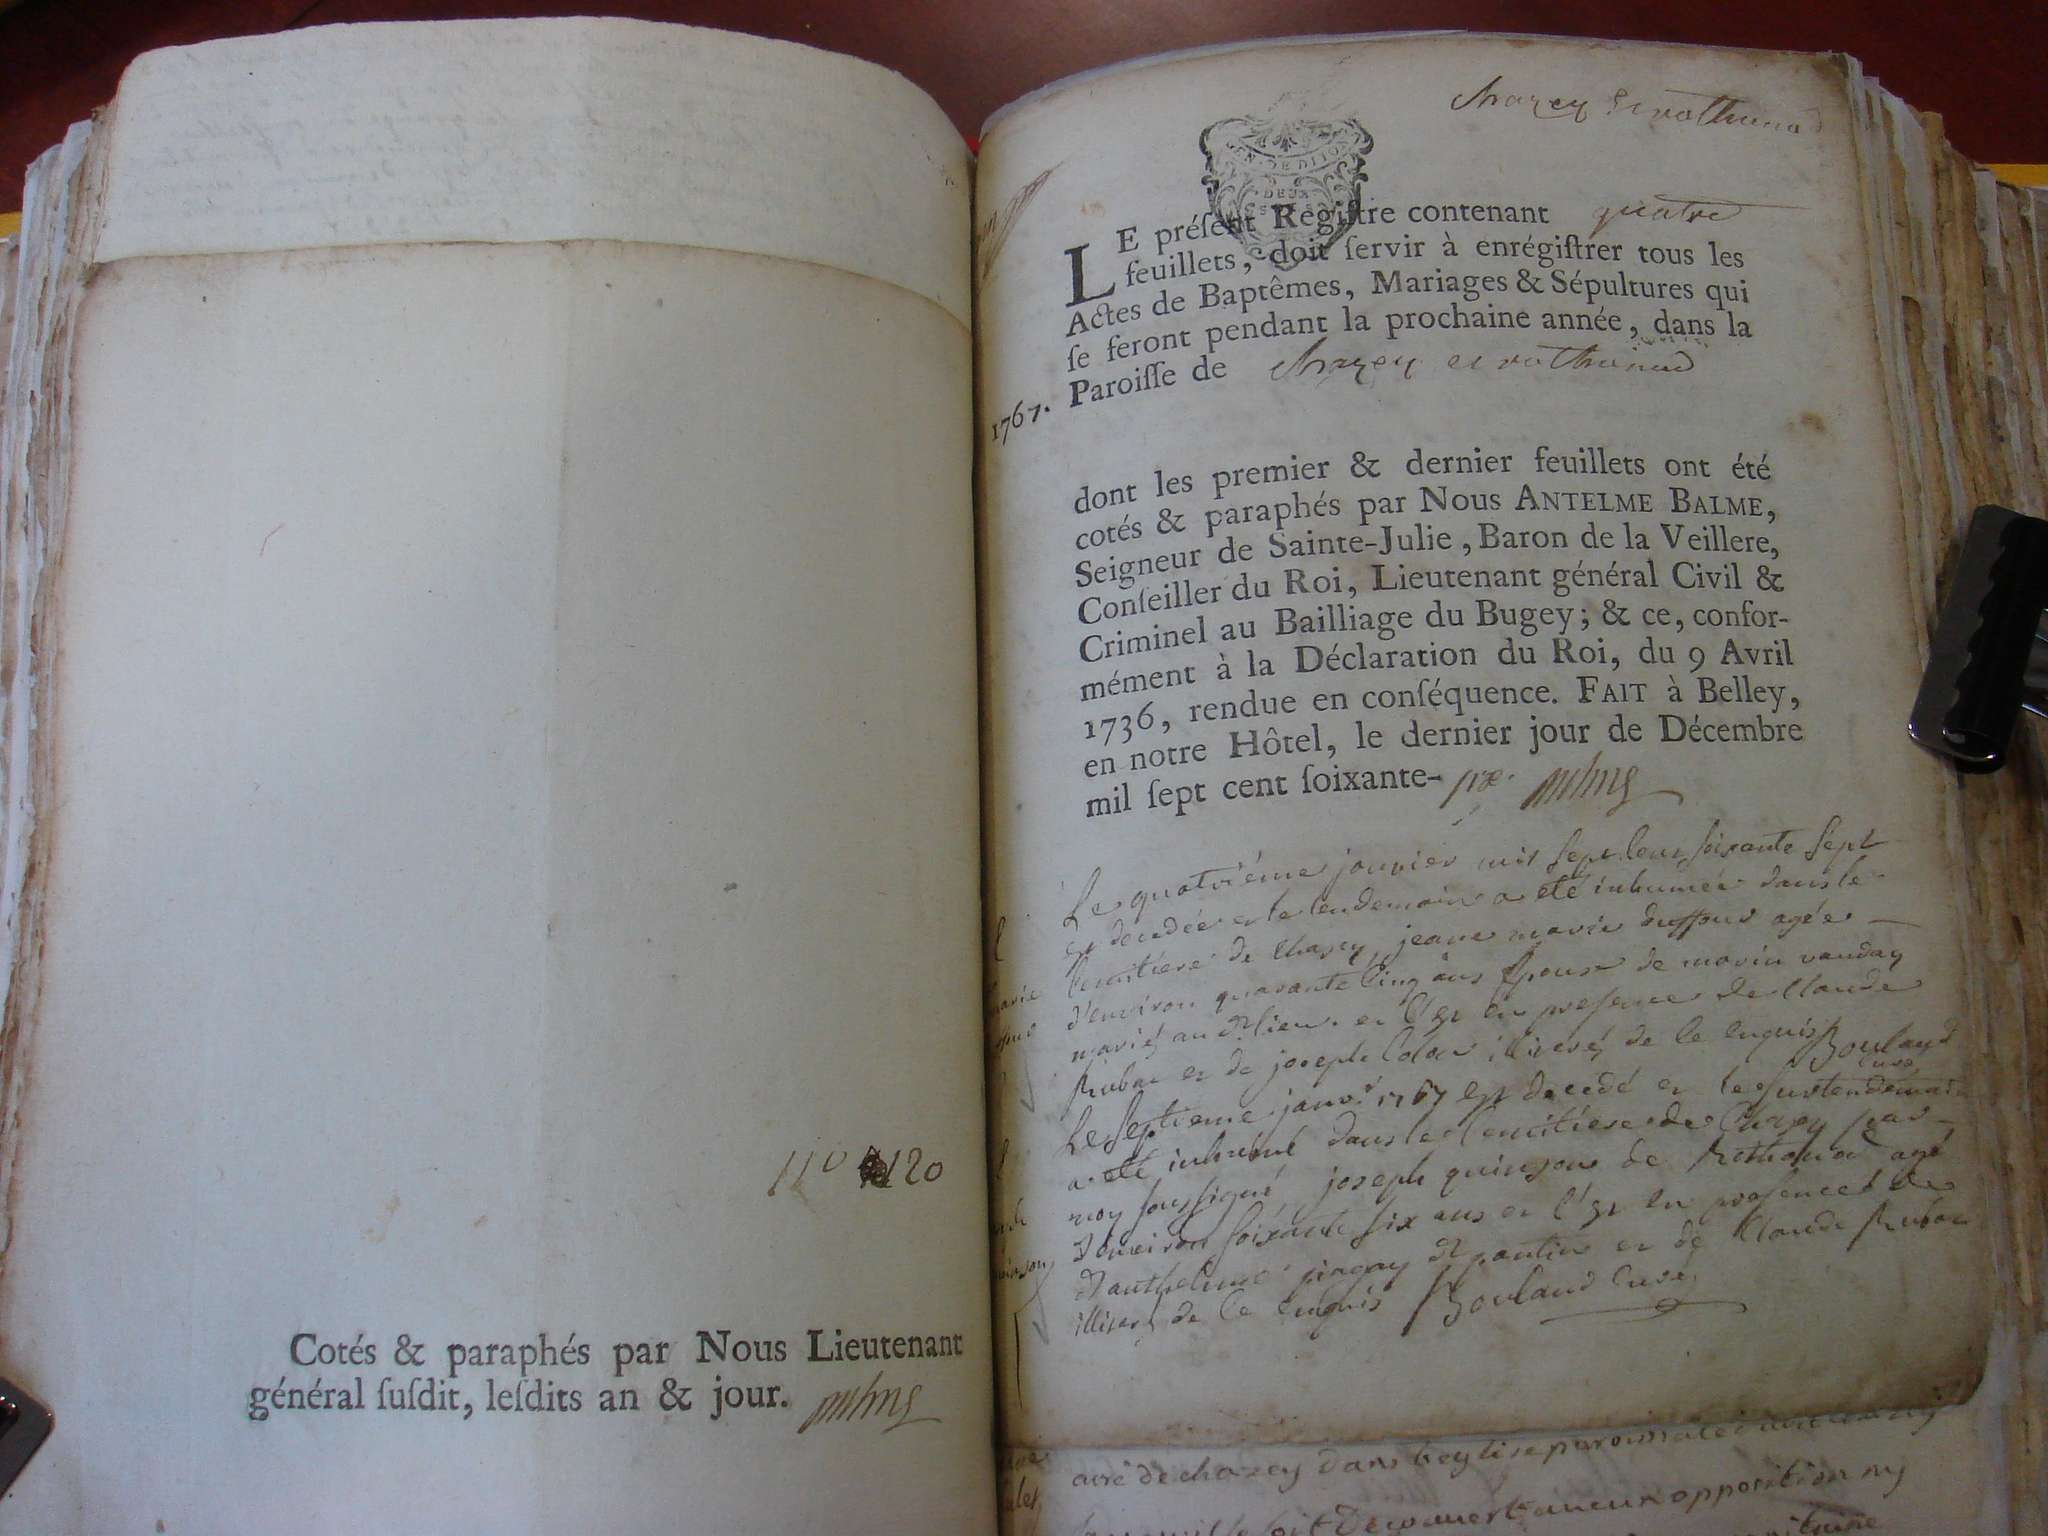 110 120
Cotés & paraphés par Nous Lieutenant
général ſuſdit, leſdits an & jour.
Chazey et rothonod
GEN. DE DIJON
DEUX
LE préſent Regiſtre contenant quatre
feuillets, doit ſervir à enrégiſtrer tous les
Actes de Baptêmes, Mariages & Sépultures qui
ſe feront pendant la prochaine année, dans la
1767. Paroiſſe de Chazey et rothonod
dont les premier & dernier feuillets ont été
cotés & paraphés par Nous ANTELME BALME,
Seigneur de Sainte-Julie, Baron de la Veillere,
Conſeiller du Roi, Lieutenant général Civil &
Criminel au Bailliage du Bugey; & ce, confor-
mément à la Déclaration du Roi, du 9 Avril
1736, rendue en conſéquence. FAIT à Belley,
en notre Hôtel, le dernier jour de Décembre
mil ſept cent ſoixante-six.
Le quatriéme janvier mil sept cent soixante sept
est decedée et le lendemain a eté inhumée dans le
cemitiere de chazey jeane marie duffour agée
d'environ quarante cinq ans Epouse de marin vauday
marié au dt lieu. et c'est en presence de Claude
Rubat et de joseph illiterés de ce enquis Bouland
curé
Le septieme janvr 1767 est decedé et le surlendemain
a eté inhumé dans le cemitiere de Chazey par
moy soussigné joseph quinson de Rothonod agé
d'environ soixante six ans et c'est en presence de
d'anthelme pingay dt pantin et de Claude Rubat
illiterés de ce enquis Bouland Curé
curé de chazey dans l'eglise paroissiale
decouvert aucun opposition ny